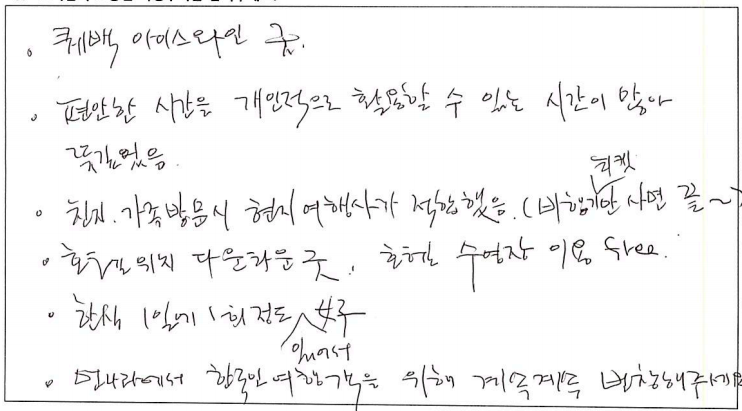 。 퀘백 아이스와인 굿.
。 편안한 시간을 개인적으로 활용할 수 있는 시간이 많아
뜻깊었음.
티켓
• 친지.가족방문시 현지여행사가 적합했음.(비행기만 사면 끝~)
• 호텔 위치 다운타운 굿. 호텔 수영장 이용 free.
• 한식 1일에 1회정도 好
있어서
• 먼나라에서 한국인여행가족을 위해 계속계속 번창해주세요